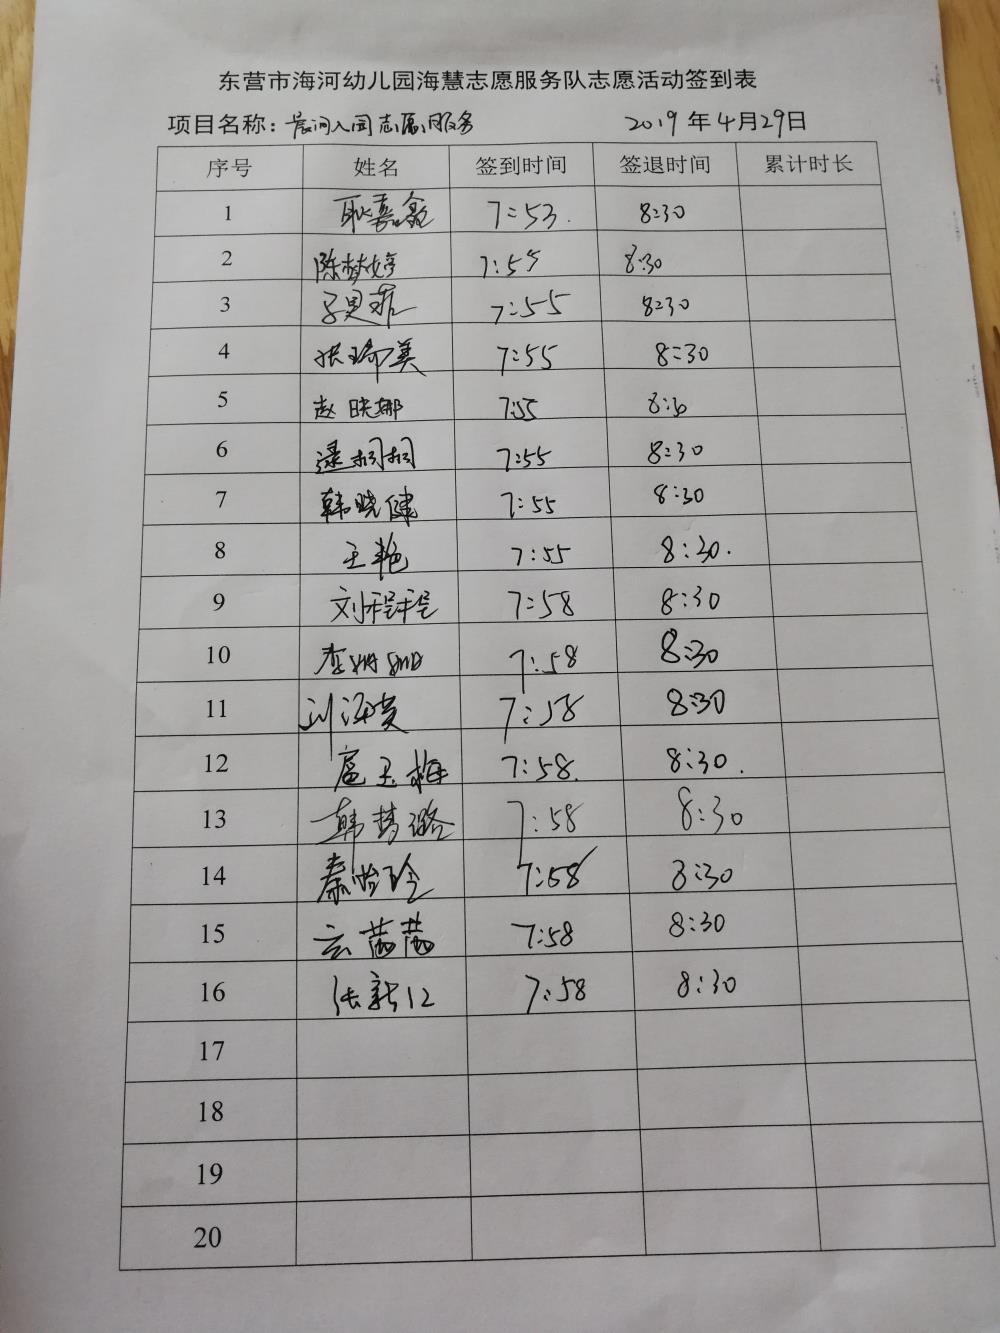 东营市海河幼儿园海慧志愿服务队志愿活动签到表
项目名称：晨间入园志愿服务 2019年4月29日
序号 姓名 签到时间 签退时间 累计时长
1 耿嘉鑫 7:53. 8:30
2 陈梦婷 7:55 8:30
3 7:55 8:30
4 张瑜美 7:55 8:30
5 赵晓娜 7:55
6 逯桐桐 7:55 8:30
7 韩晓健 7:55 8:30
8 王艳 7:55 8:30.
9 刘程程 7:58 8:30
10 李姗姗 7:58 8:30
11 刘海英 7:58 8:30
12 扈玉梅 7:58. 8:30.
13 韩梦璐 7:58 8:30
14 秦 7:58 8:30
15 云茜茜 7:58 8:30
16 张新 7:58 8:30
17
18
19
20